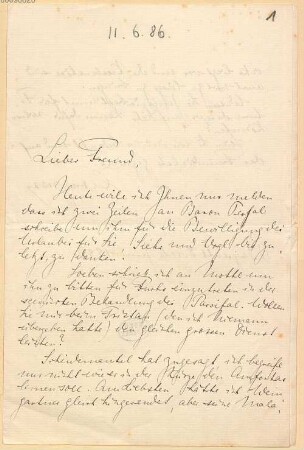 1
11.6.86.
Lieber Freund,
Heute will ich Ihnen nur melden
dass ich zwei Zeilen an Baron Perfall
schreibe um ihm für die Bewilligung des
Urlaubes für Sie, Siehr und Vogl bis zu
letzt zu danken!
Soeben schrieb ich an Mottl um
ihn zu bitten für Fuchs einzutreten in der
Behandlung des Parsifal. Wollen
Sie nur beim Tristan (den ich Niemann
hatte) den gleichen grossen Dienst
leisten?
Scheidemantel hat zugesagt, ich
nur nicht wie er in der Kürze den Amfortas
lernen soll. Am liebsten hätte ich Wein
gartner gleich hingesendet, aber seine